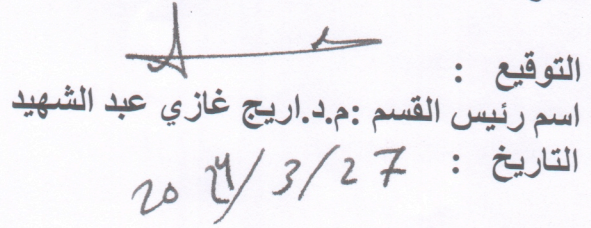 التوقيع :
اسم رئيس القسم :م.د.اريج غازي عبد الشهيد
التاريخ : 27/3/